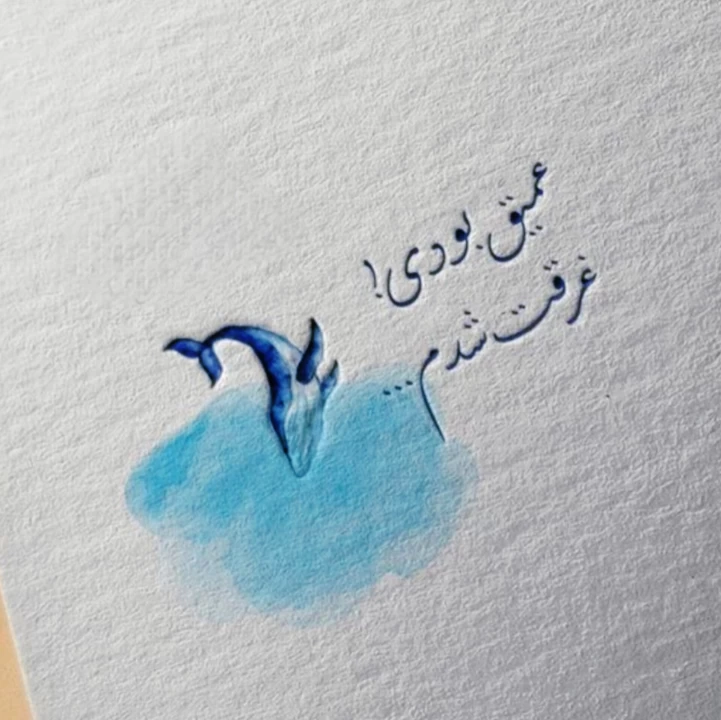 عمیق بودی!
غرقت شدم...